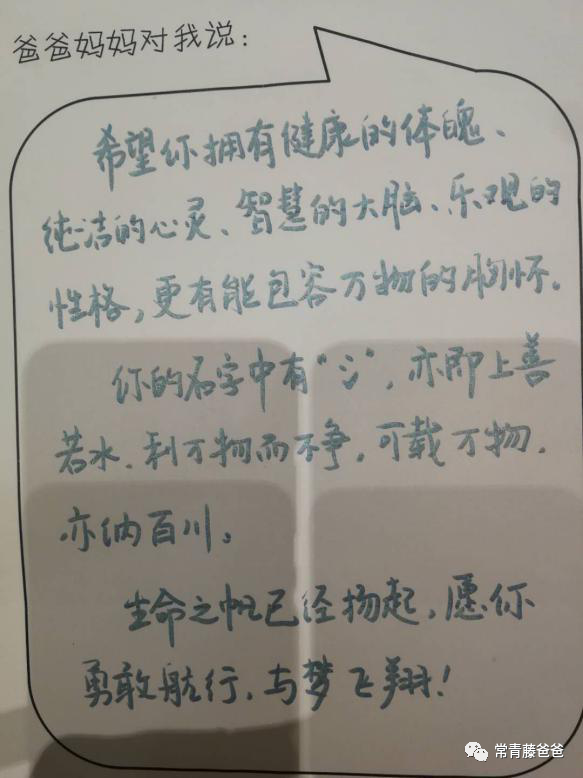 爸爸妈妈对我说：
希望你拥有健康的体魄、
纯洁的心灵、智慧的大脑、乐观的
性格，更有能包容万物的胸怀。
你的名字中有“氵”，亦即上善
若水．利万物而不争，可载万物，
亦纳百川。
生命之帆已经扬起，愿你
勇敢航行，与梦飞翔！
常青藤爸爸